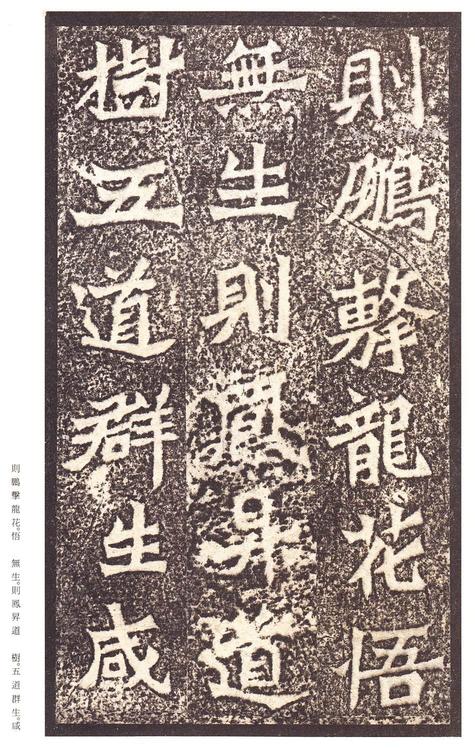 則鵬擊龍花悟
無生則鳳升道
樹五道群生咸
則鵬擊龍花。悟　無生。則鳳昇道　樹。五道群生。咸